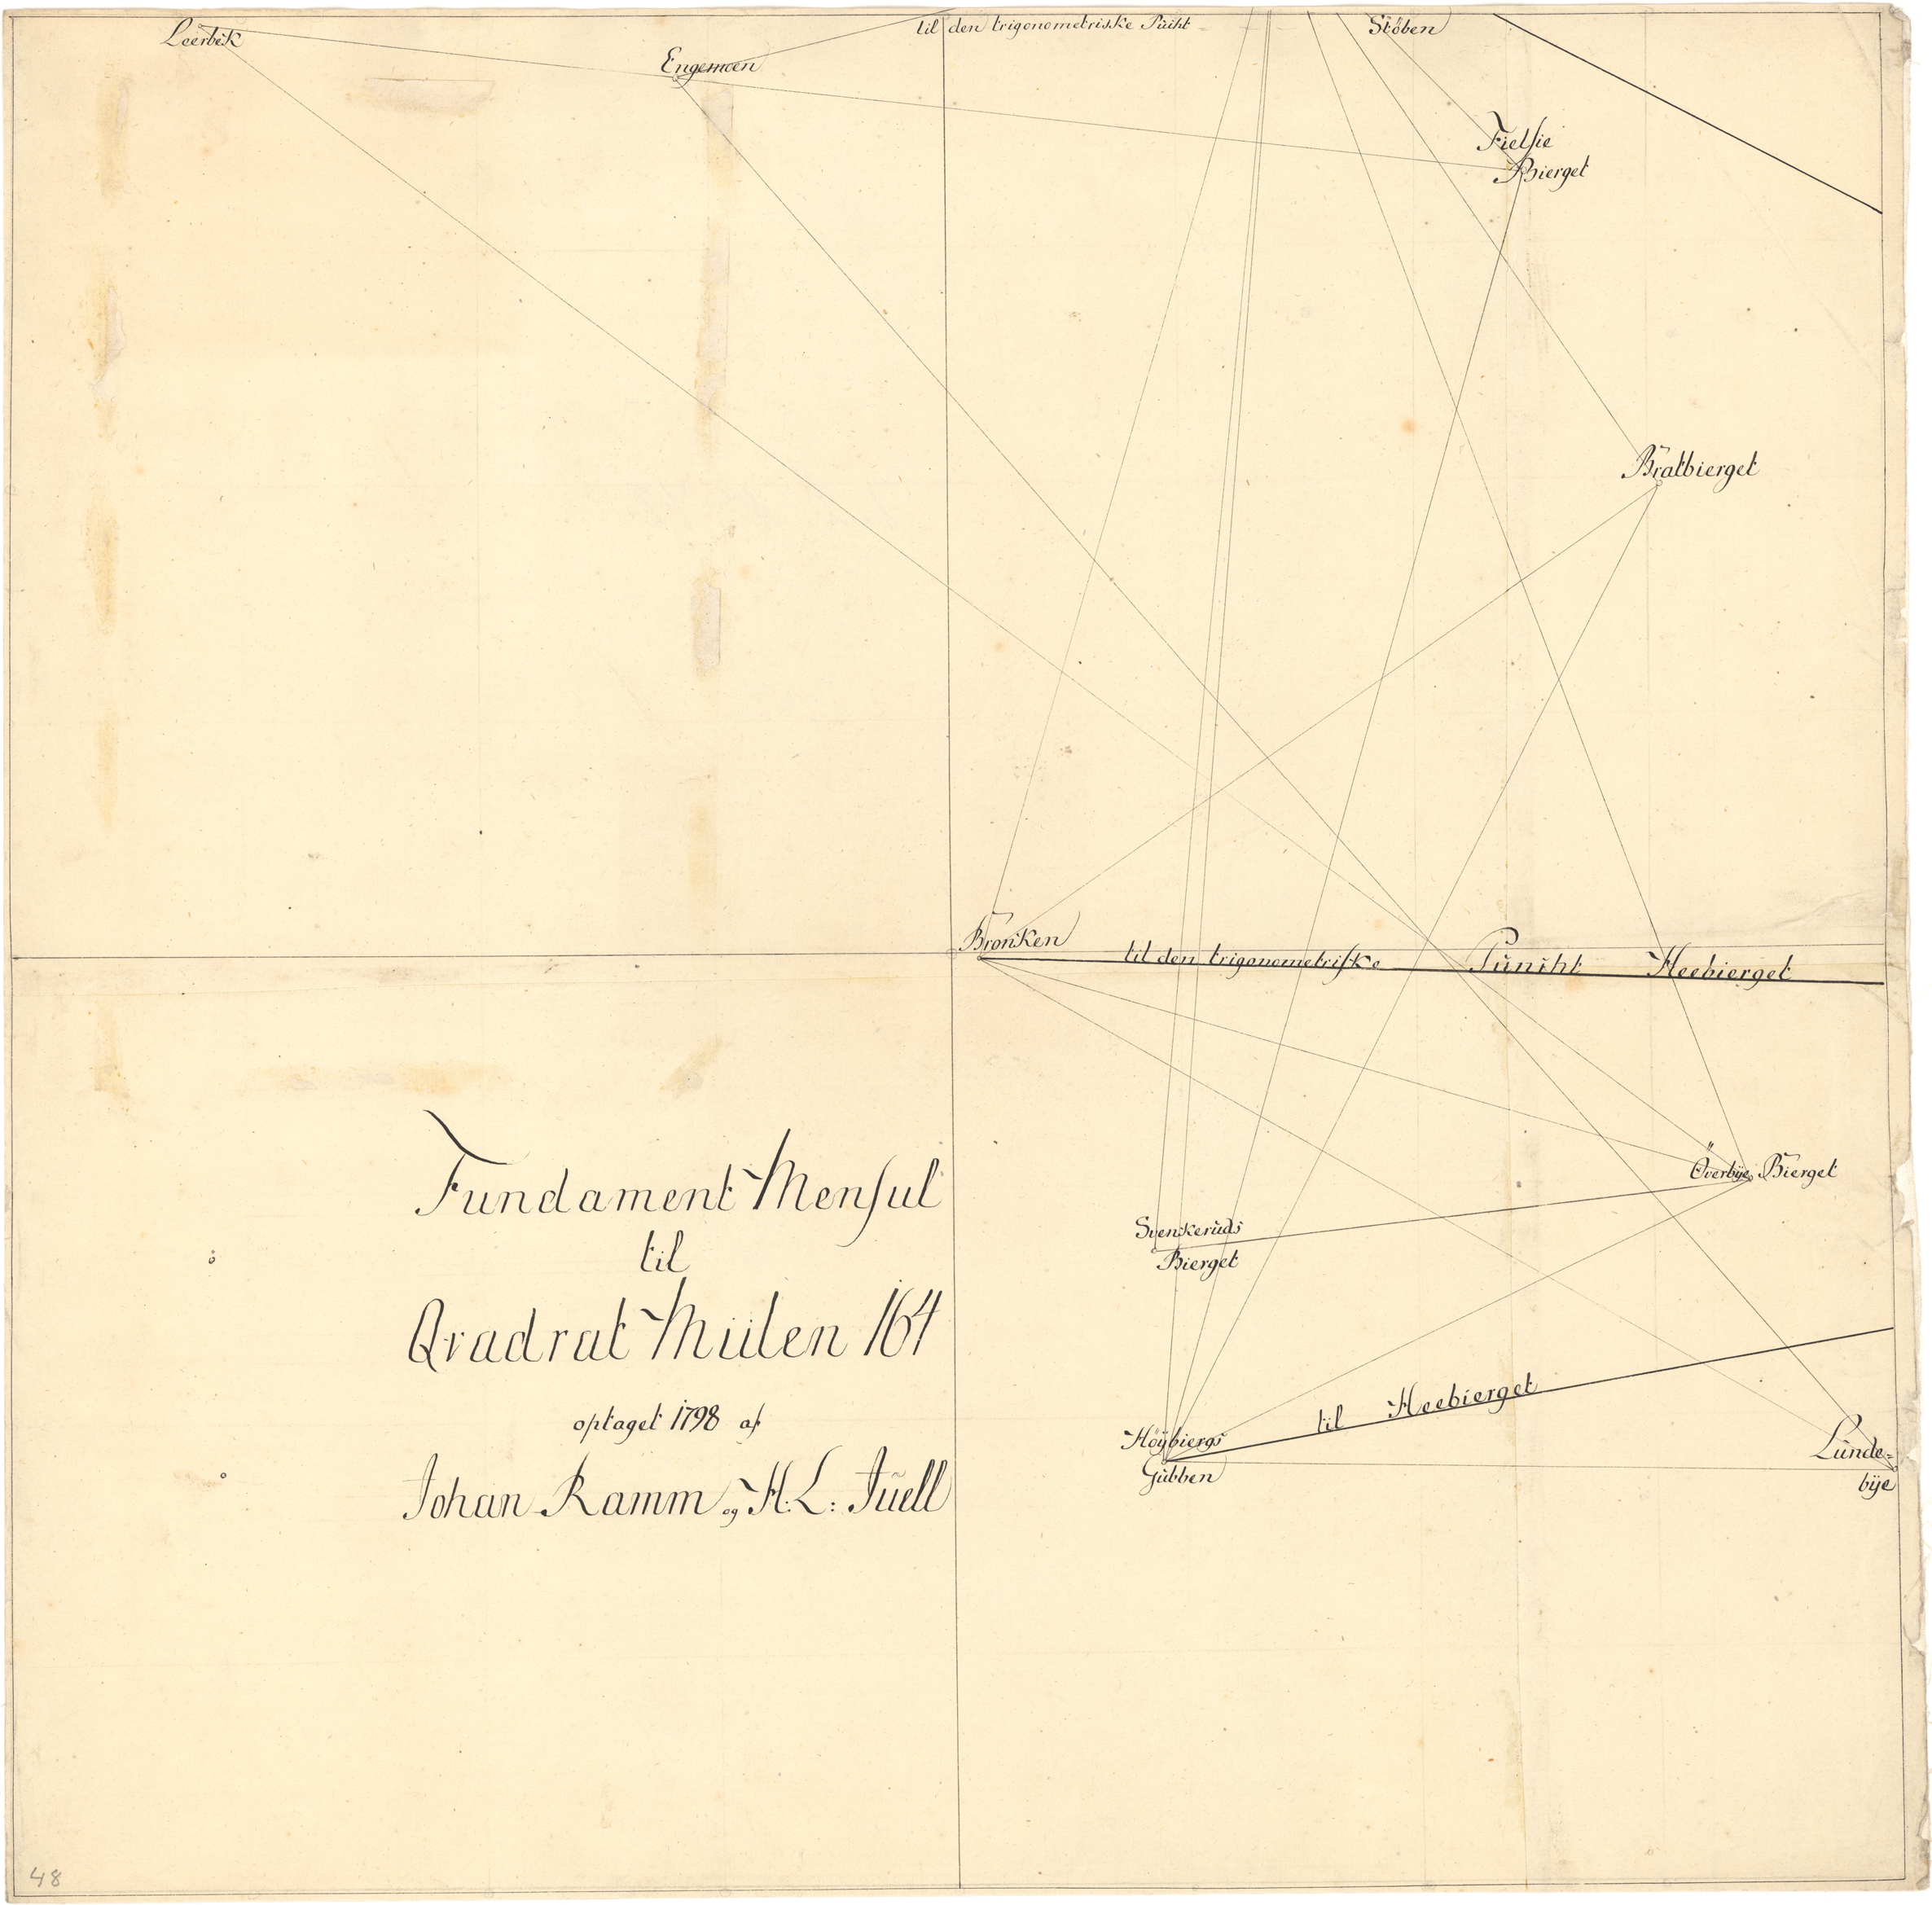 Leerbek
til den trigonometriske Puiht
Stöben
Engemoen
Fielſie
Bierget
Bratbierget
Bronken
til den trigonometriſke Puncht Heebierget
Överbÿe Bierget
Svenkeruds
Bierget
Fundament Menſul
til
Qvadrat Miilen 164
optaget 1798 af
Johan Ramm og H: L: Juell
til Heebierget
Höÿbiergs
Gubben
Lunde-
bÿe
48